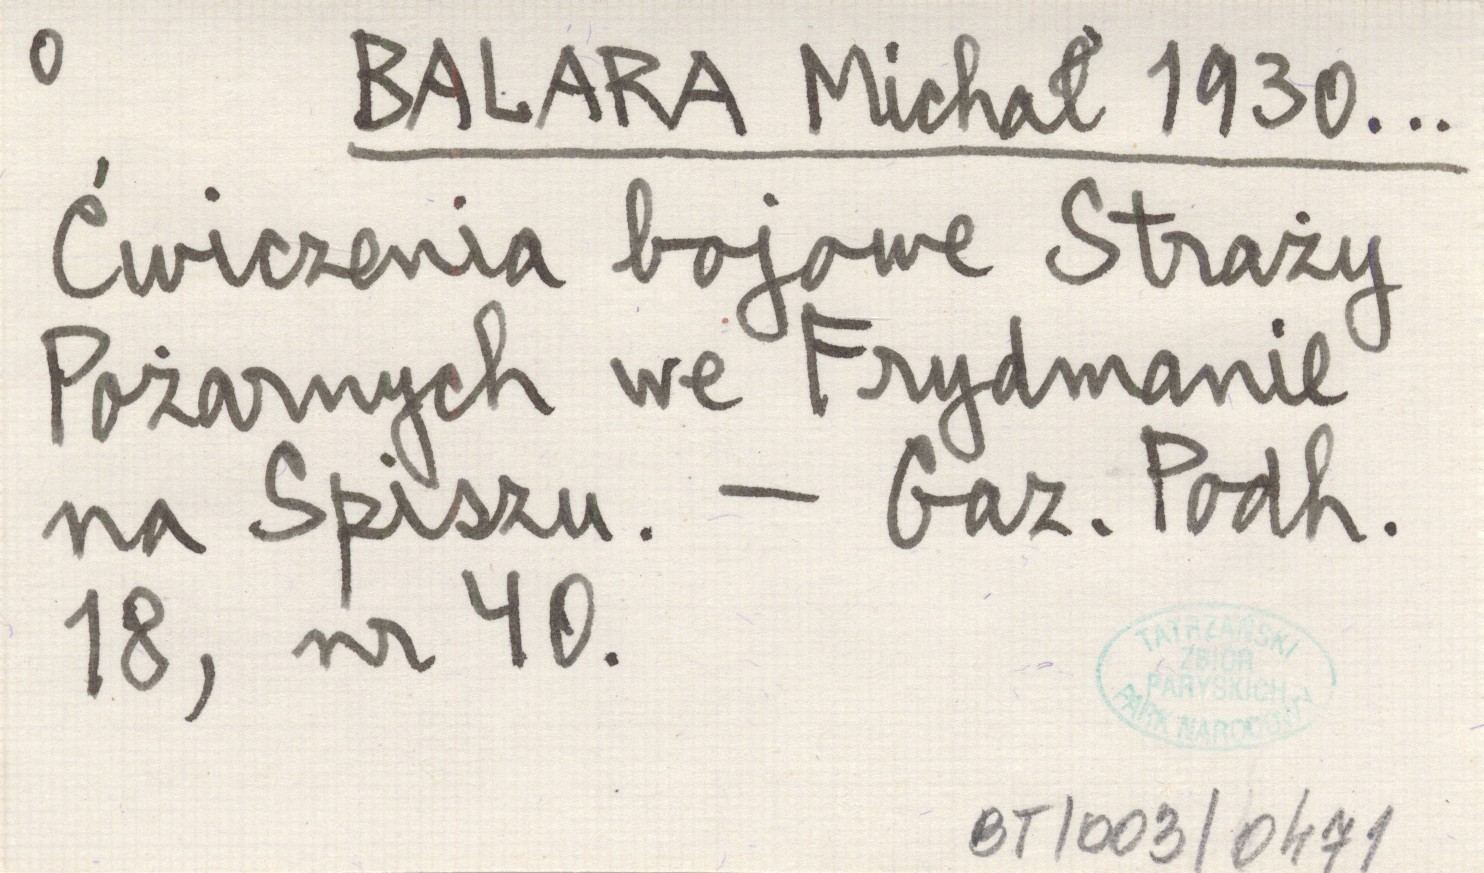 0 BALARA Michał 1930...
Ćwiczenia bojowe Straży
Pożarnych we Frydmanie
na Spiszu. — Gaz. Podh.
18, nr 40.
TATRZAŃSKI
ZBIÓR
PARYSKICH
PARK NARODOWY
BT/003/0471